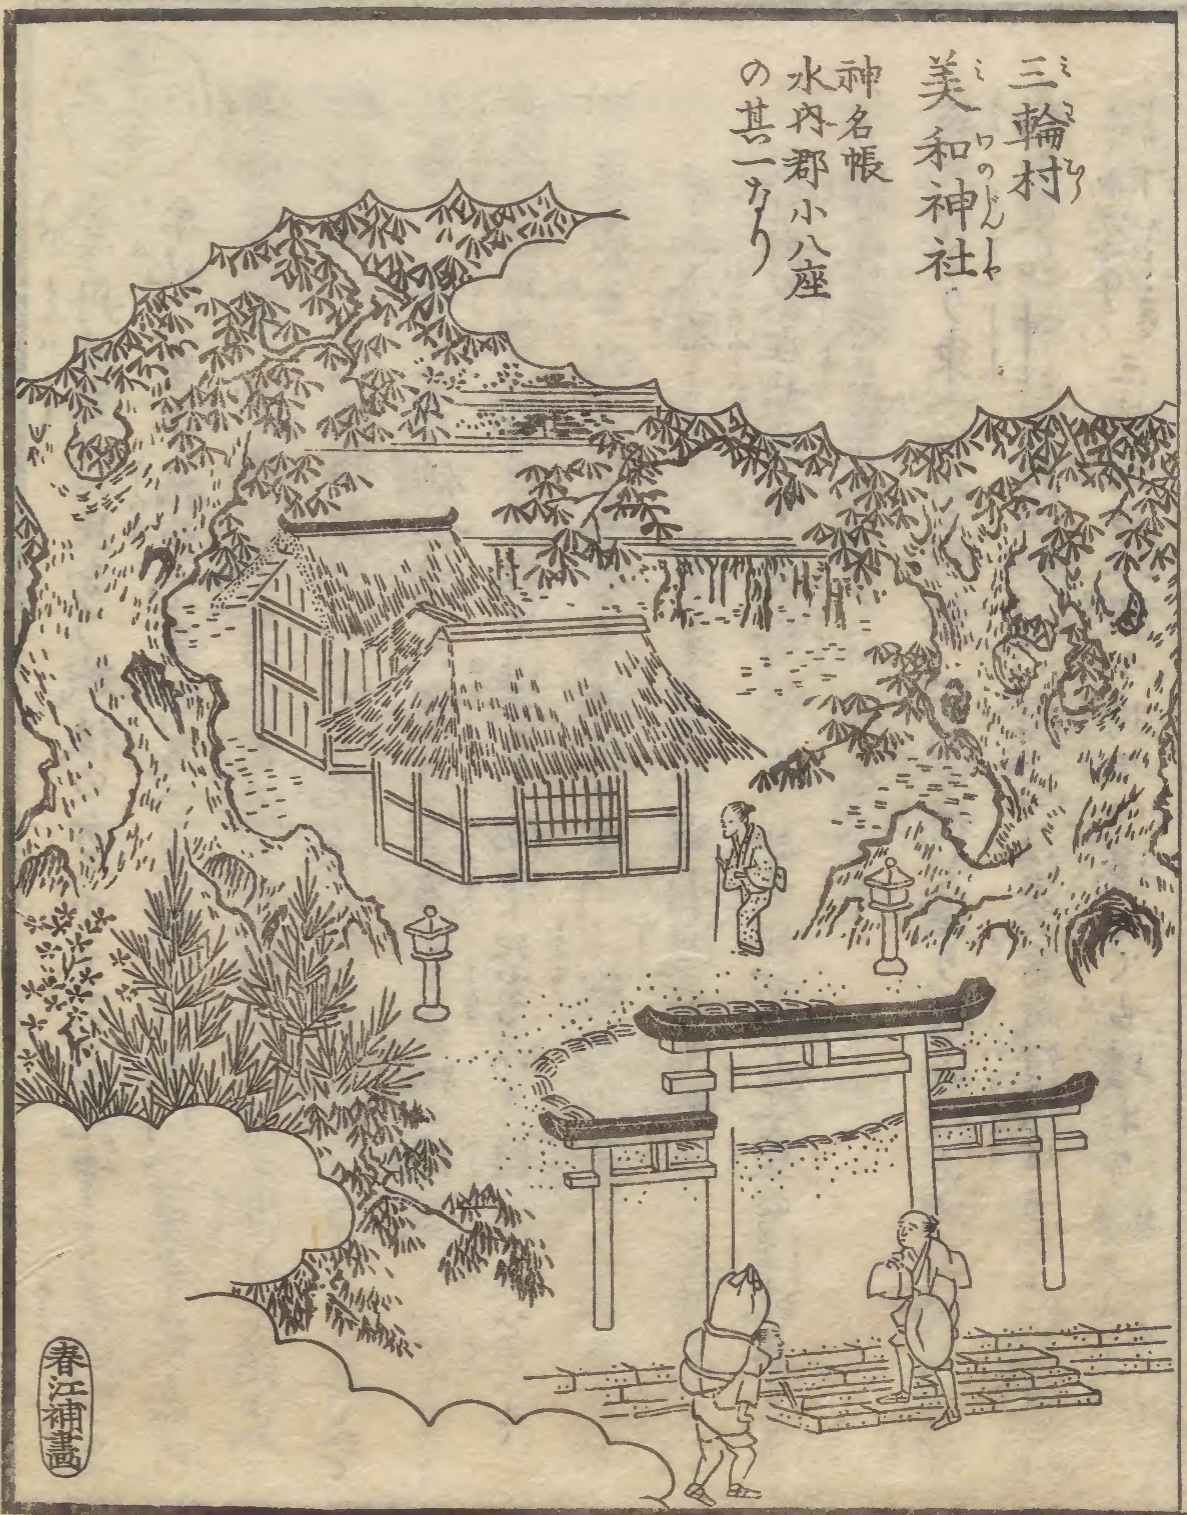 三輪村
美和神社
神名帳
水内郡小八座
の其一なり
春江補畫